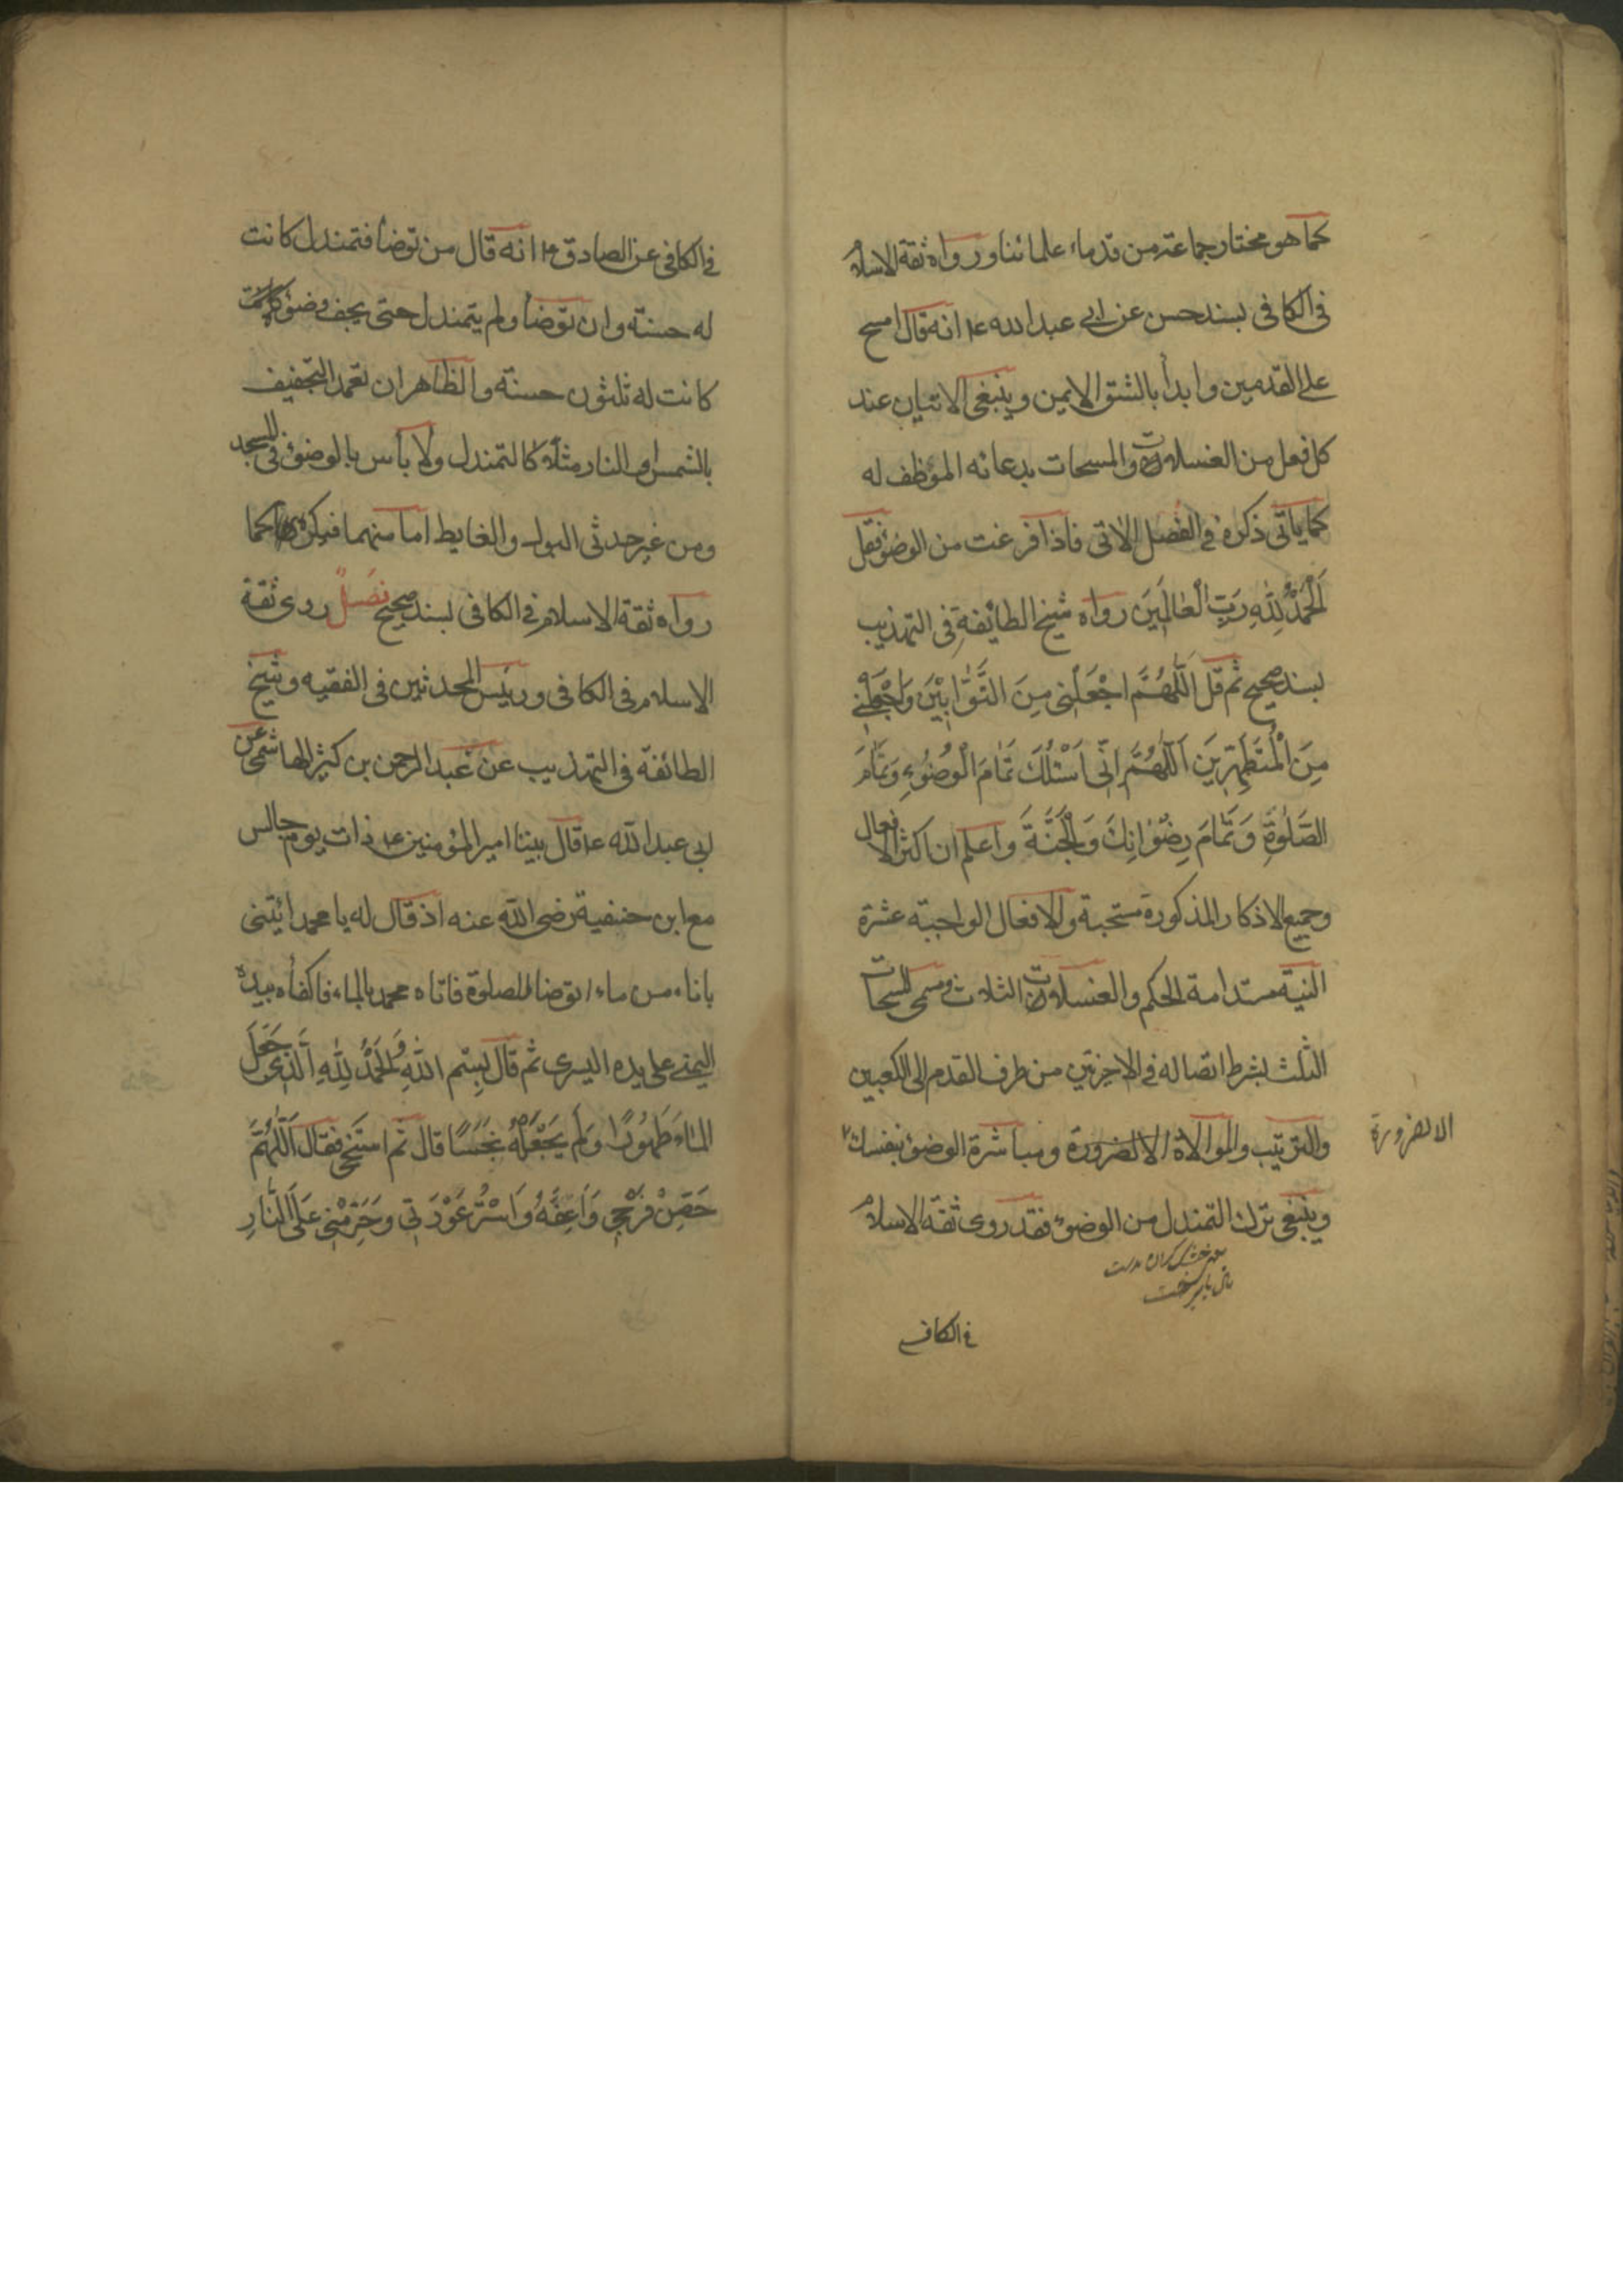 كما هو مختار جماعة من قدماء علمائنا ورواه ثقة الاسلام
فى الكافى بسند حسن عن ابى عبد الله ع انه قال امسح
على القدمين وابدأ بالشق الايمن وينبغى الاتيان عند
كل فعل من الغسلات والمسحات بدعائه المؤظف له
كما ياتى ذكره فى الفصل الاتى فاذا فرغت من الوضوء فقل
اَلْحَمْدُ لِلّٰهِ رَبِّ الْعٰالَمِينَ رواه شيخ الطائفة فى التهذيب
بسند صحيح ثم قل اَللّٰهُمَّ اجْعَلْنِى مِنَ التَّوّٰابِيْنَ وَاجْعَلْنِى
مِنَ الْمُتَطَهِّرِيَن اَللّٰهُمَّ اِنّى اَسْئَلُكَ تَمٰامَ الْوُضُوءِ وَتَمٰامَ
الصَّلٰوةِ وَتَمٰامَ رِضْوٰانِكَ وَالْجَنَّةَ واعلم ان اكثر الافعال
وجميع الاذكار المذكورة مستحبة والافعال الواجبة عشرة
النية مستدامة الحكم والغسلات الثلاث ومسمى المسحات
الثلث بشرط اتصاله فى الاخرتين من طرف القدم الى الكعبين
والترتيب والموالاة الا لضرورة ومباشرة الوضوء بنفسك
الا لضرورة
وينبغى ترك التمندل من الوضوء فقد روى ثقة الاسلام
فى الكافى
فى الكافى عن الصادق ع انه قال من توضأ فتمندل كانت
له حسنة وان توضأ ولم يتمندل حتى يجف وضوئه
كانت له ثلثون حسنة والظاهر ان تعمد التجفيف
بالشمس والنار مثلا كالتمندل ولا بأس بالوضوء فى المسجد
ومن غير حدثى البول والغايط اما منهما فيكره كما
رواه ثقة الاسلام فى الكافى بسند صحيح فصل روى ثقة
الاسلام فى الكافى ورئيس المحدثين فى الفقيه وشيخ
الطائفة فى التهذيب عن عبد الرحمن بن كثير الهاشمى عن
ابى عبد الله ع قال بينا امير المؤمنين ع ذات يوم جالس
مع ابن حنفية رضى الله عنه اذ قال له يا محمد ائتنى
باناء من ماء اتوضأ للصلوة فاتاه محمد بالماء فاكفأه بيده
اليمنى على يده اليسرى ثم قال بِسْمِ اللّٰهِ وَالْحَمْدُ لِلّٰهِ اَلَّذِى جَعَلَ
الْمٰاءَ طَهُورًا وَلَمْ يَجْعَلْهُ نَجَسًا قال ثم استنجى فقال اَللّٰهُمَّ
حَصِّنْ فَرْجِى وَاَعِفَّهُ وَاسْتُرْ عَوْرَتِى وَحَرِّمْنِى عَلَى النّٰارِ